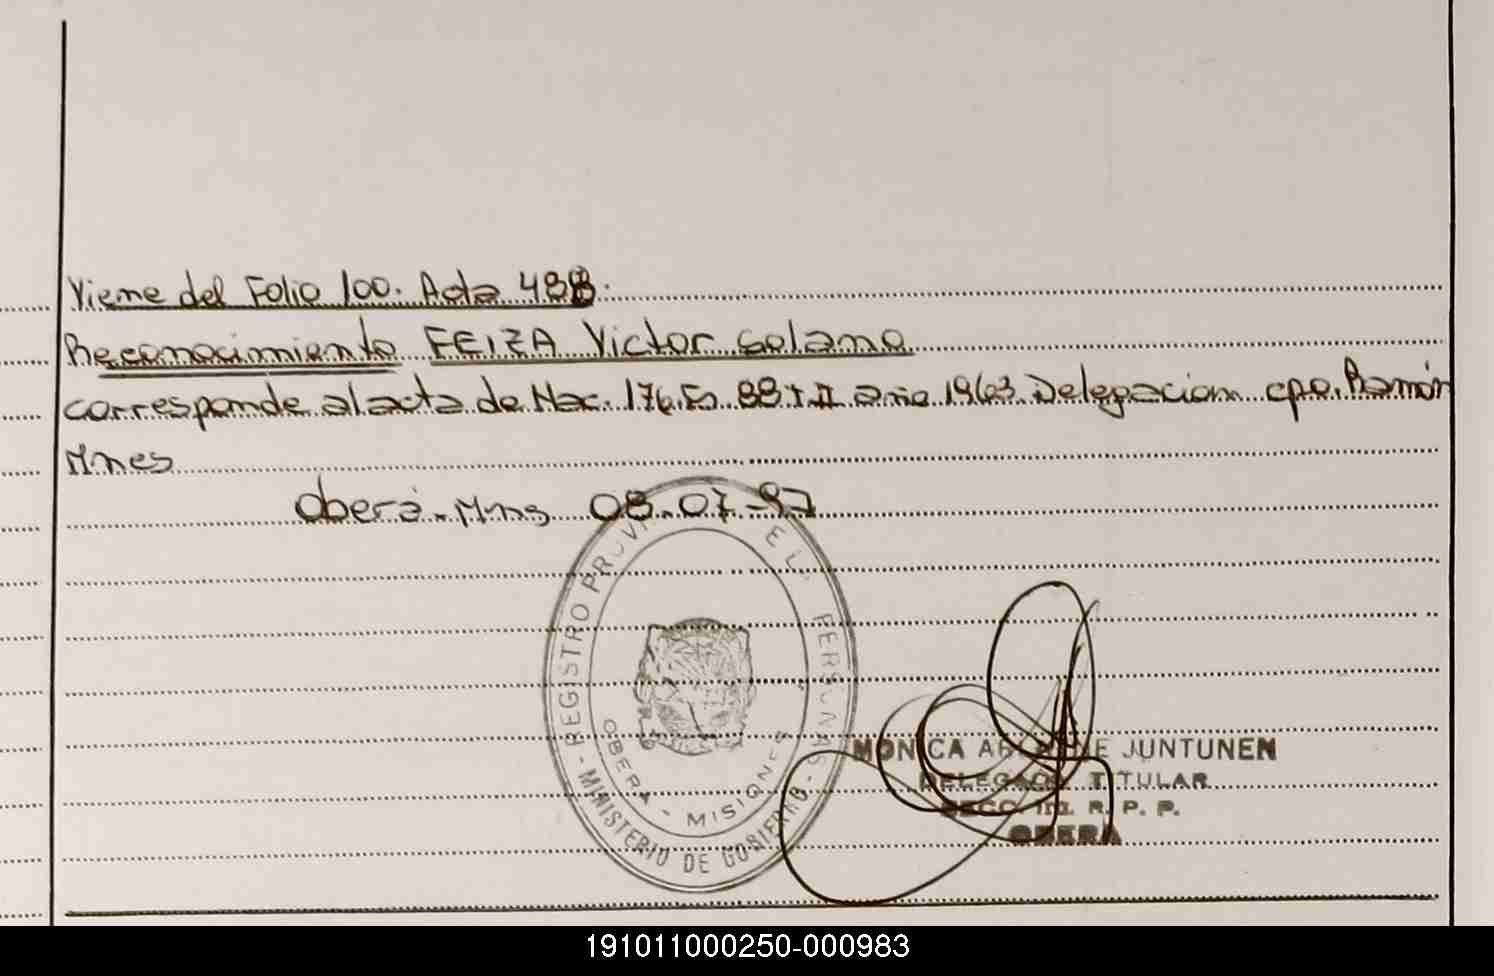 Viene del Folio 100. Acta 488.
Reconocimiento FEIZA Victor Solano
corresponde al acta de Nac. 176. Fo 88 t II año 1963 Delegacion cpo. Ramón
Mnes
Oberá - Mns 08-07-97
REGISTRO PROVI EL PERSONAS
- MINISTERIO DE GOBIERNO -
OBERA - MISIONES
MONICA JUNTUNEN
DELEGADO TITULAR
SECC. 1ra. R. P. P.
OBERA
191011000250-000983